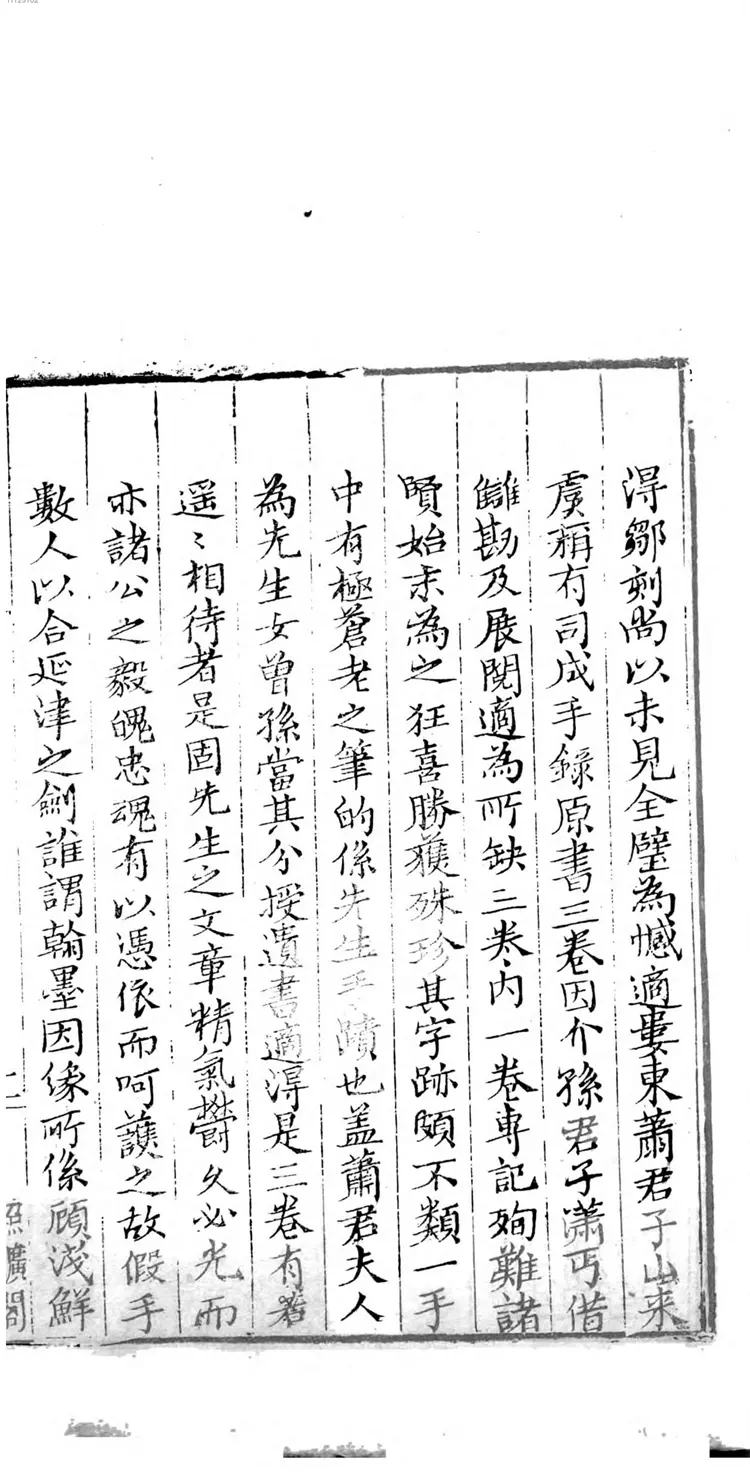 得鄒刻尚以未見全璧為憾適婁東蕭君子山来
虞稱有司成手錄原書三卷因介孫君子瀟丐借
讎勘及展閱適為所缺三卷内一卷専記殉難諸
賢始末為之狂喜勝獲殊珍其字跡頗不類一手
中有極蒼老之筆的係先生手蹟也盖蕭君夫人
為先生女曾孫當其分授遺書適淂是三卷有若
遥〻相待者是固先生之文章精氣欎久必光而
亦諸公之毅魄忠魂有以憑依而呵護之故假手
數人以合延津之劍誰謂翰墨因緣所係顧淺鮮
二
照曠閣